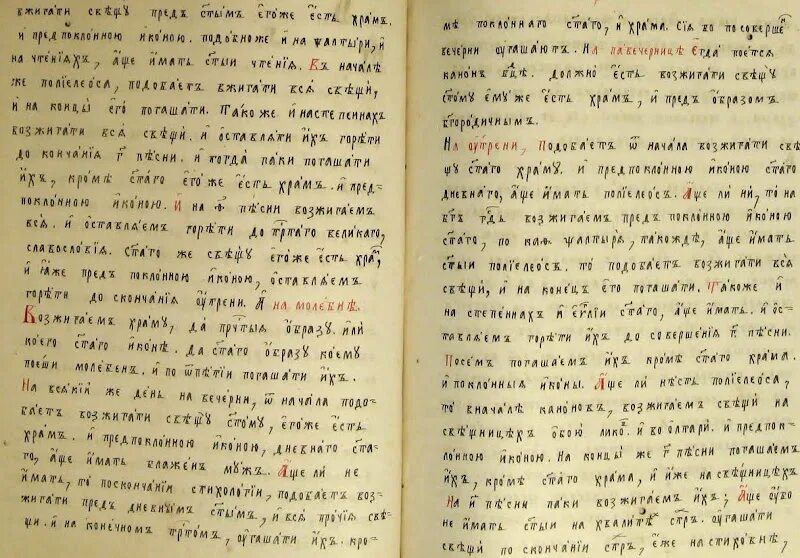 вжигати свѣщу предъ ст҃ымъ єгоже є҆сть храмъ.
и҆ предпоклонною и҆коною. подобноже и҆ на ѱалтыри, и҆
на чтенїѧхъ, а҆ще и҆мать ст҃ыи чтенїѧ. Въ началѣ
же полїелеоса, подобаетъ вжигати всѧ свѣщи,
и҆ на концы є҆го погашати. Такоже и҆ настепеннахъ
возжигати всѧ свѣщи. и҆ ѡ҆ставлѧти и҆хъ горѣти
до кончанїѧ г҃ пѣсни. и҆ тогда паки погашати
и҆хъ, кромѣ ст҃аго є҆гоже є҆сть храмъ. и҆ пред-
поклонною и҆коною. И҆ на ѳ҃ пѣсни возжигаемъ
всѧ. и҆ ѡ҆ставлѧемъ горѣти до трⷭ҇таго великаго,
славословїѧ. Ст҃аго же свѣщу є҆гоже є҆сть храⷨ,
и҆ ꙗ҆же предъ поклонною и҆коною, ѡ҆ставлѧемъ
горѣти до скончанїѧ ѹ҆трени. А҆ на молебнѣ.
Возжигаемъ храму, да прⷱ҇тыѧ ѡ҆бразу. и҆ли
коего ст҃аго и҆конѣ. да ст҃аго ѡ҆бразу коему
поеши молебенъ. и҆ по ѿпѣтїи погашати и҆хъ.
На всѧкїй же день на вечерни, ѿ начала подо-
баетъ возжигати свѣщу ст҃ому, є҆гоже є҆сть
храмъ. и҆ предпоклонною и҆коною, дневнаго ст҃а-
го, а҆ще и҆мать блаженъ мужъ. А҆ще ли не
и҆мать, то поскончанїи стихологїи, подобаетъ воз-
жигати предъ дневнымъ ст҃ымъ, и҆ всѧ прочїѧ свѣ-
щи. и҆ на конечномъ трⷭ҇томъ, ѹ҆гашати и҆хъ. кро-
мѣ поклоннаго ст҃аго, и҆ храма. Сїѧ во посоверше
вечерни ѹ҆гашаютъ. На павечерницѣ Е҆гда поетсѧ
канонъ бцⷣѣ. должно є҆сть возжигати свѣщу
ст҃ому є҆муже є҆сть храмъ, и҆ предъ ѡ҆бразомъ
бг҃ородичнымъ.
На ѹ҆трени, Подобаетъ ѿ начала возжигати свѣ
щу ст҃аго храму. и҆ предпоклонною и҆коною ст҃аго
дневнаго, а҆ще и҆мать полїелеосъ. А҆ще ли ни, то на
возжигаемъ предъ поклонною и҆коною
ст҃аго, по ѱалтырѧ, такожде, а҆ще и҆мать
ст҃ыи полїелеосъ. то подобаетъ возжигати всѧ
свѣщи, и҆ на конецъ є҆го погашати. Такоже и҆
на степеннахъ и҆ є҆ѵⷢ҇лїи ст҃аго, а҆ще и҆мать. и҆ ѡ҆с-
тавлѧемъ горѣти и҆хъ до совершенїѧ г҃ пѣсни.
Посемъ погашаемъ и҆хъ кромѣ ст҃аго храма.
и҆ поклонныѧ и҆коны. А҆ще ли нѣсть полїелеоса,
то вначалѣ каноновъ, возжигаемъ свѣщи на
свѣщницѣхъ ѡ҆бою ликѹ и҆ во ѻ҆лтари. и҆ предпок-
лонною и҆коною. На концы же г҃ пѣсни погашаемъ
и҆хъ, кромѣ ст҃аго храма, и҆ и҆же на свѣщницѣхъ
На и҃ пѣсни паки возжигаемъ и҆хъ; А҆ще ѹ҆бо
не и҆мать ст҃ыи на хвалите стр҃ъ. ѹ҆гашати
свѣщи по скончанїи стр҃ъ, є҆же на стиховнѣ,